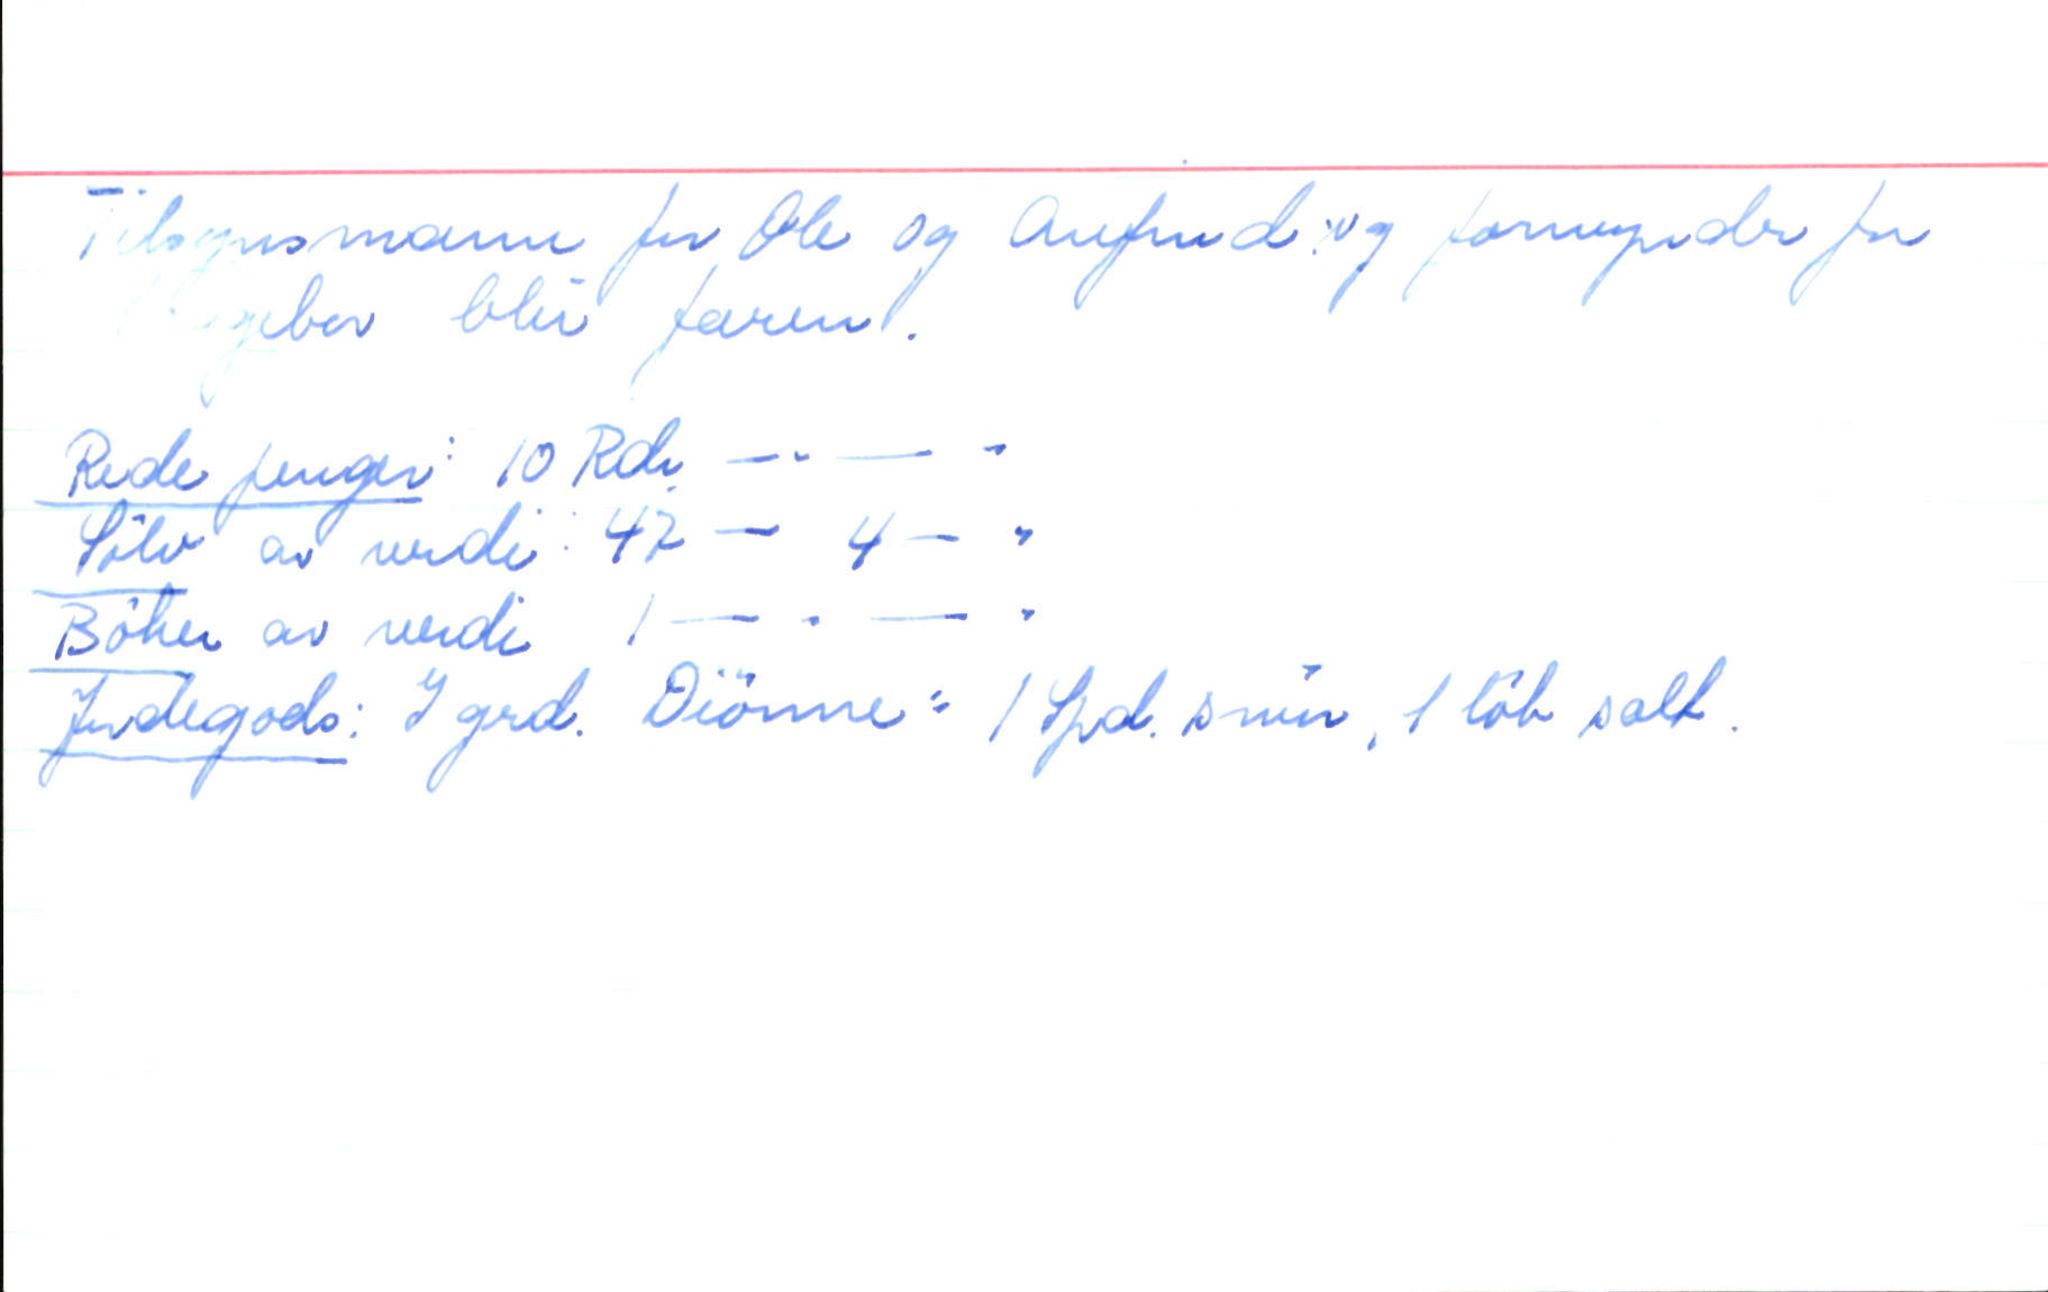 Tilsynsmann for Ole og Anfind: og formynder for
blir faren.
Rede penger: 10 Rdr — " — "
Sölv av verdi: 42 — 4 — "
Böker av verdi 1 — " — "
Jordegods: I grd. Diönne: 1 Spd. smör, 1 löb salt.